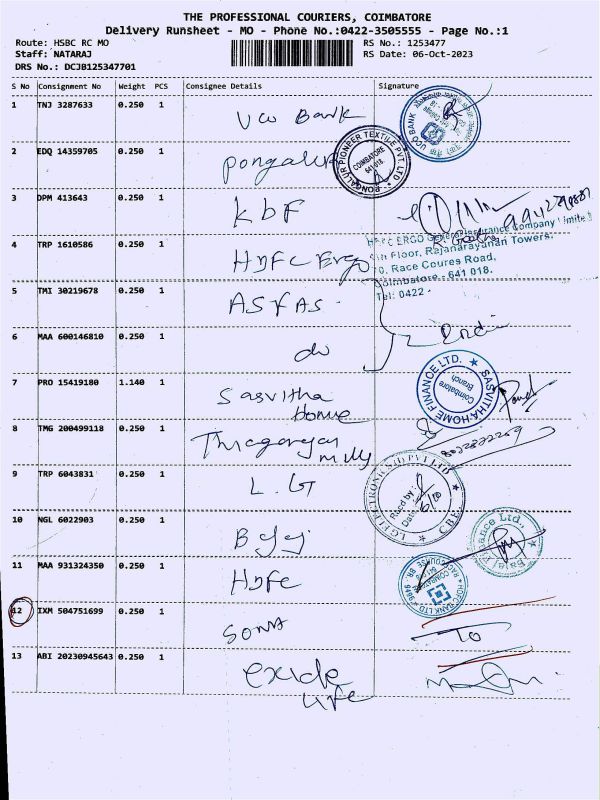 THE PROFESSIONAL COURIERS, COIMBATORE
Delivery Runsheet - MO - Phone No.:0422-3505555 - Page No.:1
Route: HSBC RC MO
RS No.: 1253477
Staff: NATARAJ
RS Date: 06-Oct-2023
DRS No.: DCJB125347701
S No Consignment No Weight PCS Consignee Details Signature
1 TNJ 3287633 0.250 1 Uco Bank
UCO BANK
2 EDQ 14359705 0.250 1 Pongalur
PONGALUR PIONEER TEXTILE PVT. LTD
COIMBATORE
641 018.
3 DPM 413643 0.250 1 kbF
4 TRP 1610586 0.250 1 HDFC Ergo
HDFC ERGO General Insurance Company Limited
5th Floor, Rajanarayanan Towers,
Race Coures Road,
Coimbatore - 641 018.
Tel: 0422 -
5 TMI 30219678 0.250 1
6 MAA 600146810 0.250 1 do
7 PRO 15419180 1.140 1 Sasvitha
Home
SASVITHA HOME FINANCE LTD.
Coimbatore
Branch
8 TMG 200499118 0.250 1 Thiagarajar
mills
9 TRP 6043831 0.250 1 L.G
LG ELECTRONICS (I) PVT LTD
Recd by:
Date:
CBE
10 NGL 6022903 0.250 1 Bajaj
Bajaj Finance Ltd.,
11 MAA 931324350 0.250 1 HDFC
HDFC BANK LTD
12 IXM 504751699 0.250 1 Sona
13 ABI 20230945643 0.250 1 exide
life